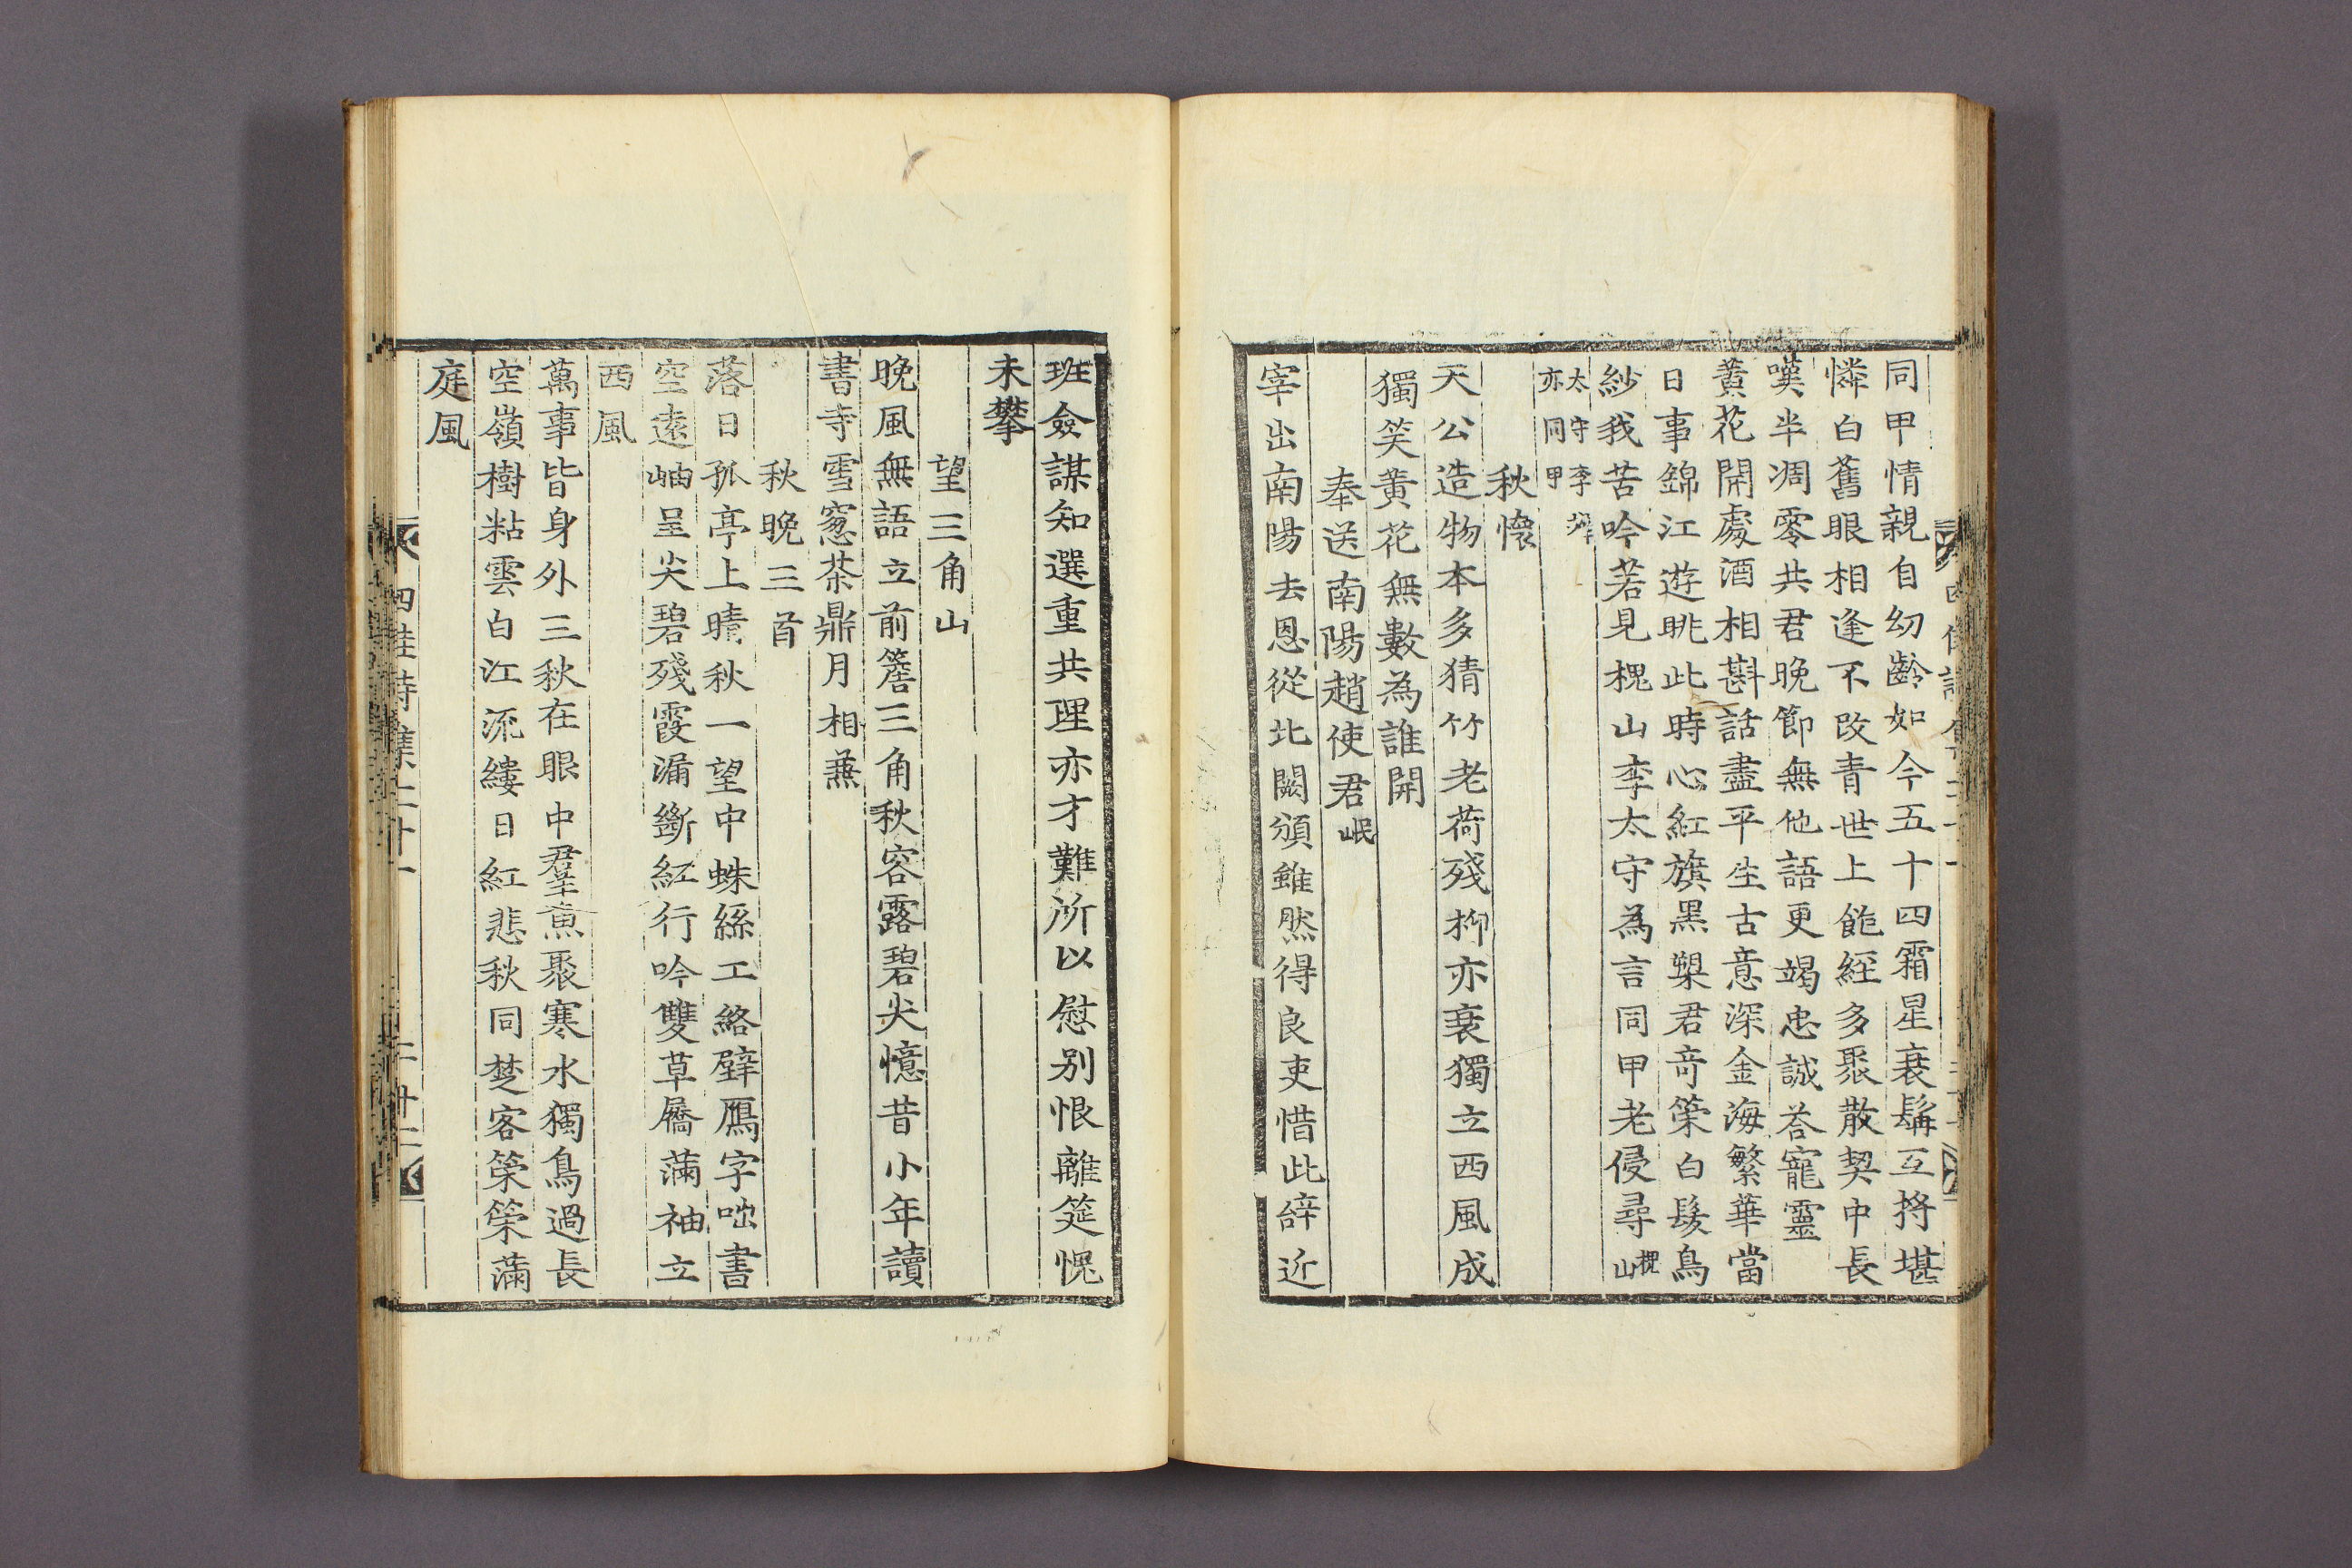 同甲情親自幼齡如今五十四霜星衰鬂互捋堪
憐白舊眼相逢不改青世上飽經多聚散契中長
嘆半凋零共君晩節無他語更竭忠誠荅寵靈
黃花開處酒相斟話盡平生古意深金海繁華當
日事錦江遊眺此時心紅旗黑槊君奇榮白髮烏
紗我苦吟若見槐山李太守為言同甲老侵尋槐山
太守李
亦同甲
秋懷
天公造物本多猜竹老荷殘柳亦衰獨立西風成
獨笑黃花無數為誰開
奉送南陽趙使君岷
宰出南陽去恩從北闕頒雖然得良吏惜此辝近
班僉謀知選重共理亦才難所以慰别恨離筵愧
未攀
望三角山
晩風無語立前簷三角秋容露碧尖憶昔小年讀
書寺雪窓茶鼎月相蕪
秋晩三首
落日孤亭上晴秋一望中蛛絲工絡壁鴈字咄書
空遠岫呈尖碧殘霞漏斷紅行吟雙草屩滿袖立
西風
萬事皆身外三秋在眼中羣魚聚寒水獨鳥過長
空嶺樹粘雲白江流縷日紅悲秋同楚客榮榮滿
庭風
四佳詩集二十一
二 卅二